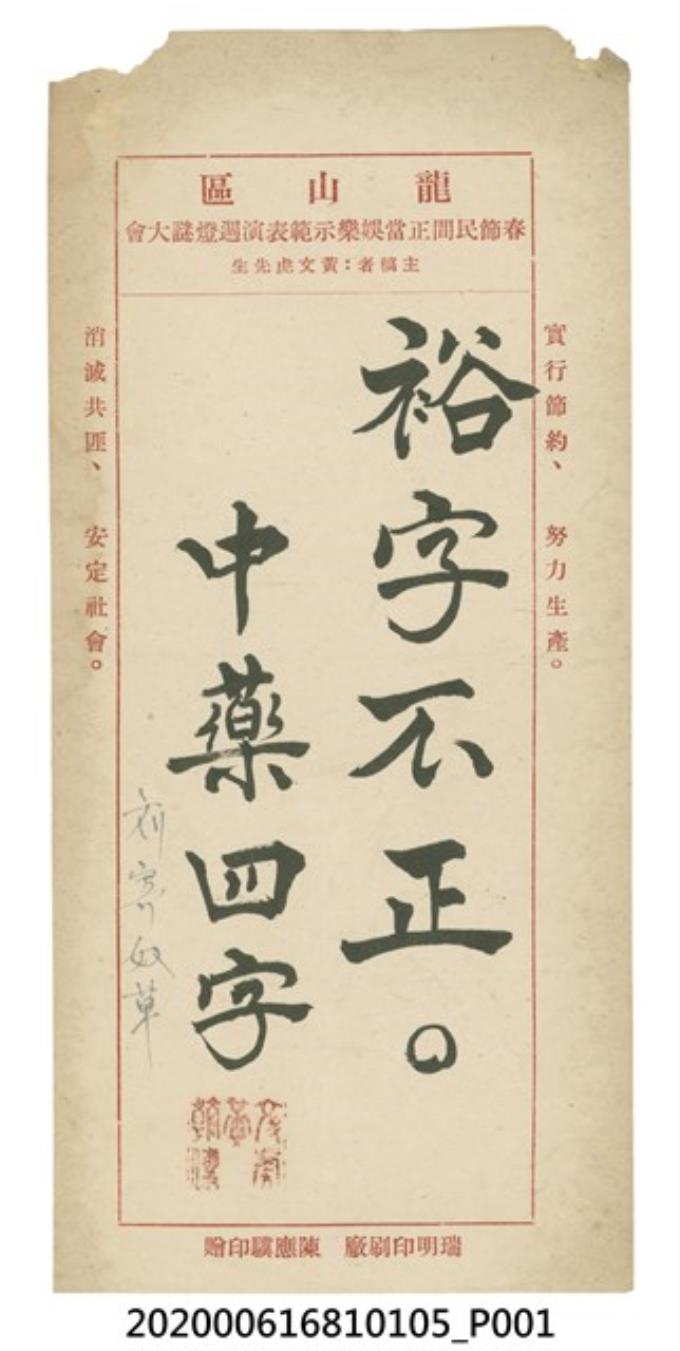 龍山區
春節民間正當娛樂示範表演週燈謎大會
主稿者：黃文虎先生
實行節約、努力生產。
裕字不正。
中藥四字
刘寄奴草
消滅共匪、安定社會。
瑞明印刷廠 陳應印贈
202000616810105_P001